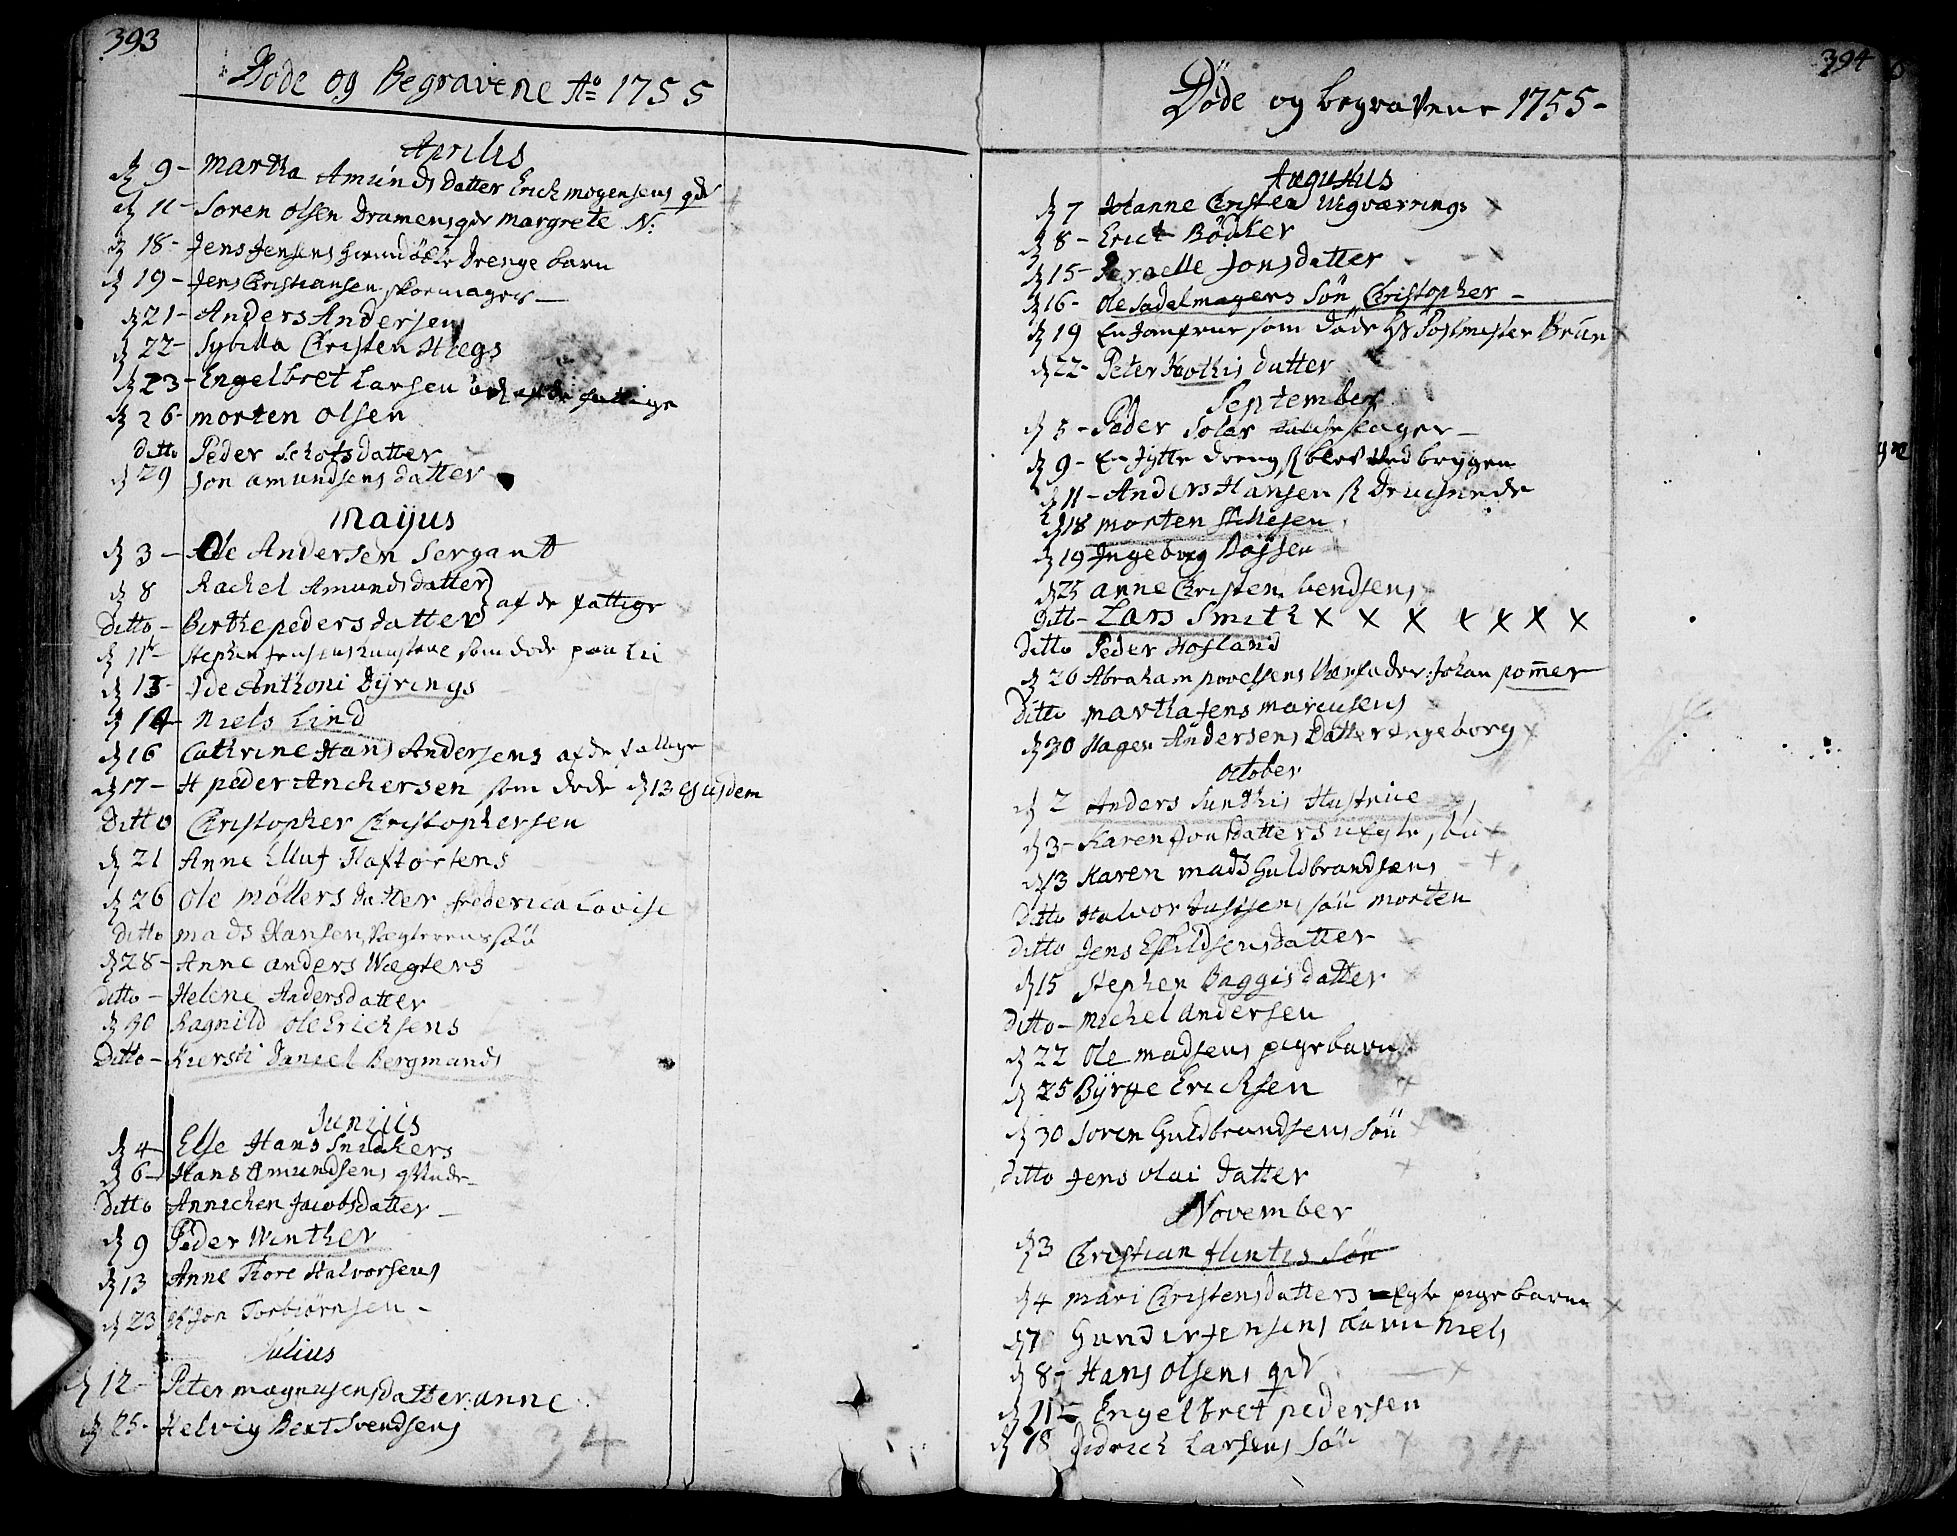 393
Døde og Begravene Ao 1755
Aprilis
d 9 - Martha Amunds datter Erich Mogensens qv
d 11 - Soren Olsen Dramens qv Margrete N:
d 18 - Jens Jensens Drenge barn
d 19 - Jens Christiansen Skoemager
d 21 - Anders Andersen
d 22 - Sybilla Christen
d 23 - Engelbret Larsen af de fattige
d 26 - Morten Olsen
Ditto Peder Schots datter
d 29 Jon Amundsens datter
Maijus
d 3 - Ole Andersen Sergant
d 8 Rachel Amunds datter
Ditto - Birthe peders datter af de fattige
d 11 - Stephen Jensens som døde paa
d 13 - Ide Anthoni Dyrings
d 14 - Niels Lind
d 16 Cathrine Hans Andersens af de fattige
d 17 - H peder Anchersen som døde d 13 ejusdem
Ditto Christopher Christophersen
d 21 Anne Elluf Haftorsens
d 26 Ole Møllers datter Frederica Lovise
Ditto Mads Hansen Vægterens søn
d 28 - Anne Anders Wægters
Ditto - Helene Andersdatter
d 30 Ragnild Ole Erichsens
Ditto - Kiersti Daniel Bergmands
Junius
d 4 Else Hans Snidkers
d 6 - Hans Amundsens qvinde
Ditto Annichen Jacobsdatter
d 9 Peder Winther
d 13 Anne Tore Halvorsens
d 23 Jon Torbiørnsen -
Julius
d 12 - Peter Magnusens datter: anne
d 25 - Helvig Bent Svendsens
34
394
Døde og begravene 1755 -
Augustus
d 7 Hanne Christen
d 8 - Erick Bødker
d 15 - Jonsdatter
d 16 - Ole Sadelmagers Søn Christopher -
d 19 En Jomfrue som døde Hs Postmester Brun
d 22 - Peter datter
September
d 3 - Peder
d 9 - En Jytte dreng blev ved bryggen
d 11 - Anders Hansen druchnede
d 18 Morten
d 19 Ingeborg Bojsen
d 25 Anne Christen bendsens
Ditto - Lars Smith x x x x x x x
Ditto Peder Hofland
d 26 Abraham povelsens Værfader: Johan pommer
Ditto Martha Jens
d 30 Hagen Andersens Datter Ingeborg
October
d 2 Anders Hustrue
d 3 - Karen Jonsdatters
d 13 Karen Mads Guldbrandsens
Ditto Halvor søn Morten
Ditto Jens Eskildsens datter
d 15 Stephen Baggis datter
Ditto - Michel Andersen
d 22 Ole Madsens pigebarn
d 25 Byrge Ericksen
d 30 Soren Guldbrandsens Søn
Ditto Jens Olai datter
November
d 3 Christian Søn
d 4 Mari Christensdatters pigebarn
d 7 Gunder Jensens barn Niels
d 8 - Hans Olsens qv
d 11 - Engelbret pedersen
d 18 Didrich Larsens Søn
34